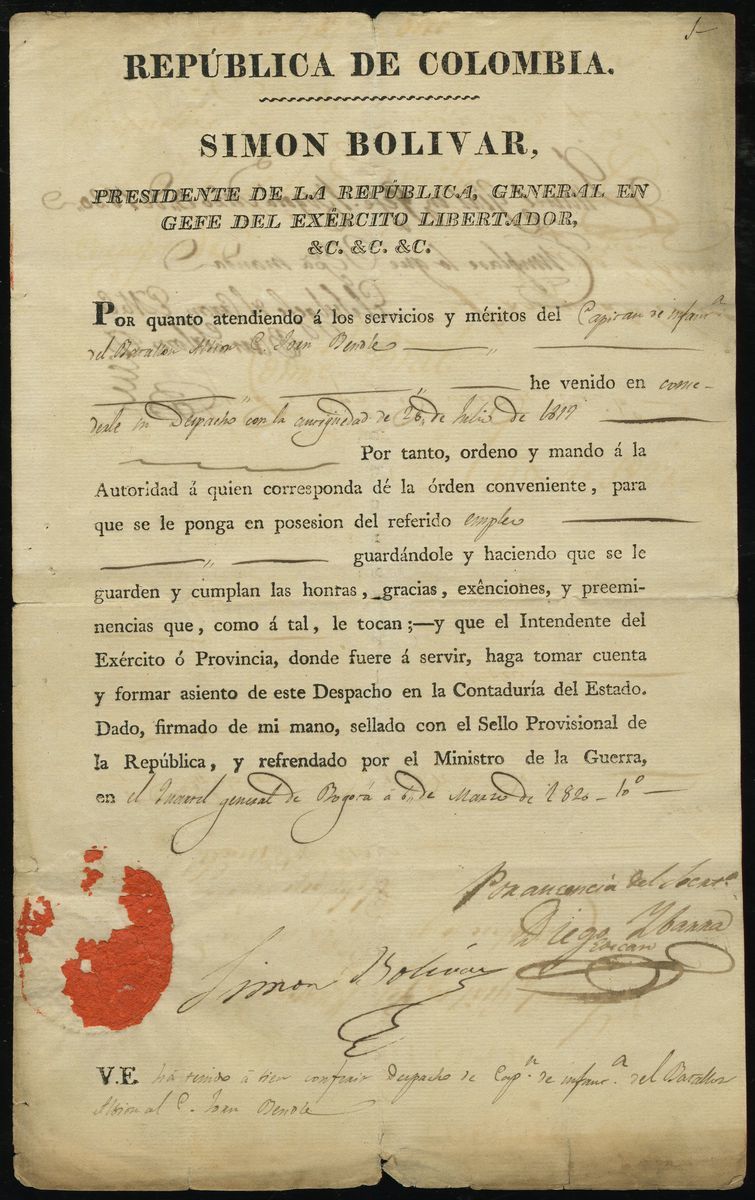 REPÚBLICA DE COLOMBIA.
SIMON BOLIVAR,
PRESIDENTE DE LA REPÚBLICA, GENERAL EN
GEFE DEL EXÉRCITO LIBERTADOR,
&C. &C. &C.
POR quanto atendiendo á los servicios y méritos del Capitan de infanª
del Batallon Albion C. Juan
he venido en conce-
derle en Despacho con la antigüedad de 26, de Julio de 1819
Por tanto, ordeno y mando á la
Autoridad á quien corresponda dé la órden conveniente, para
que se le ponga en posesion del referido empleo
guardándole y haciendo que se le
guarden y cumplan las honras, gracias, exênciones, y preemi-
nencias que, como á tal, le tocan;—y que el Intendente del
Exército ó Provincia, donde fuere á servir, haga tomar cuenta
y formar asiento de este Despacho en la Contaduría del Estado.
Dado, firmado de mi mano, sellado con el Sello Provisional de
la República, y refrendado por el Ministro de la Guerra,
en el Quartel general de Bogotá a 6, de Marzo de 1820-10º
Por aucencia del Secretº
Diego Ybarra
Simon Bolívar
V.E. há tenido á bien conferir Despacho de Capn de infanª del Batallon
Albion al C. Juan